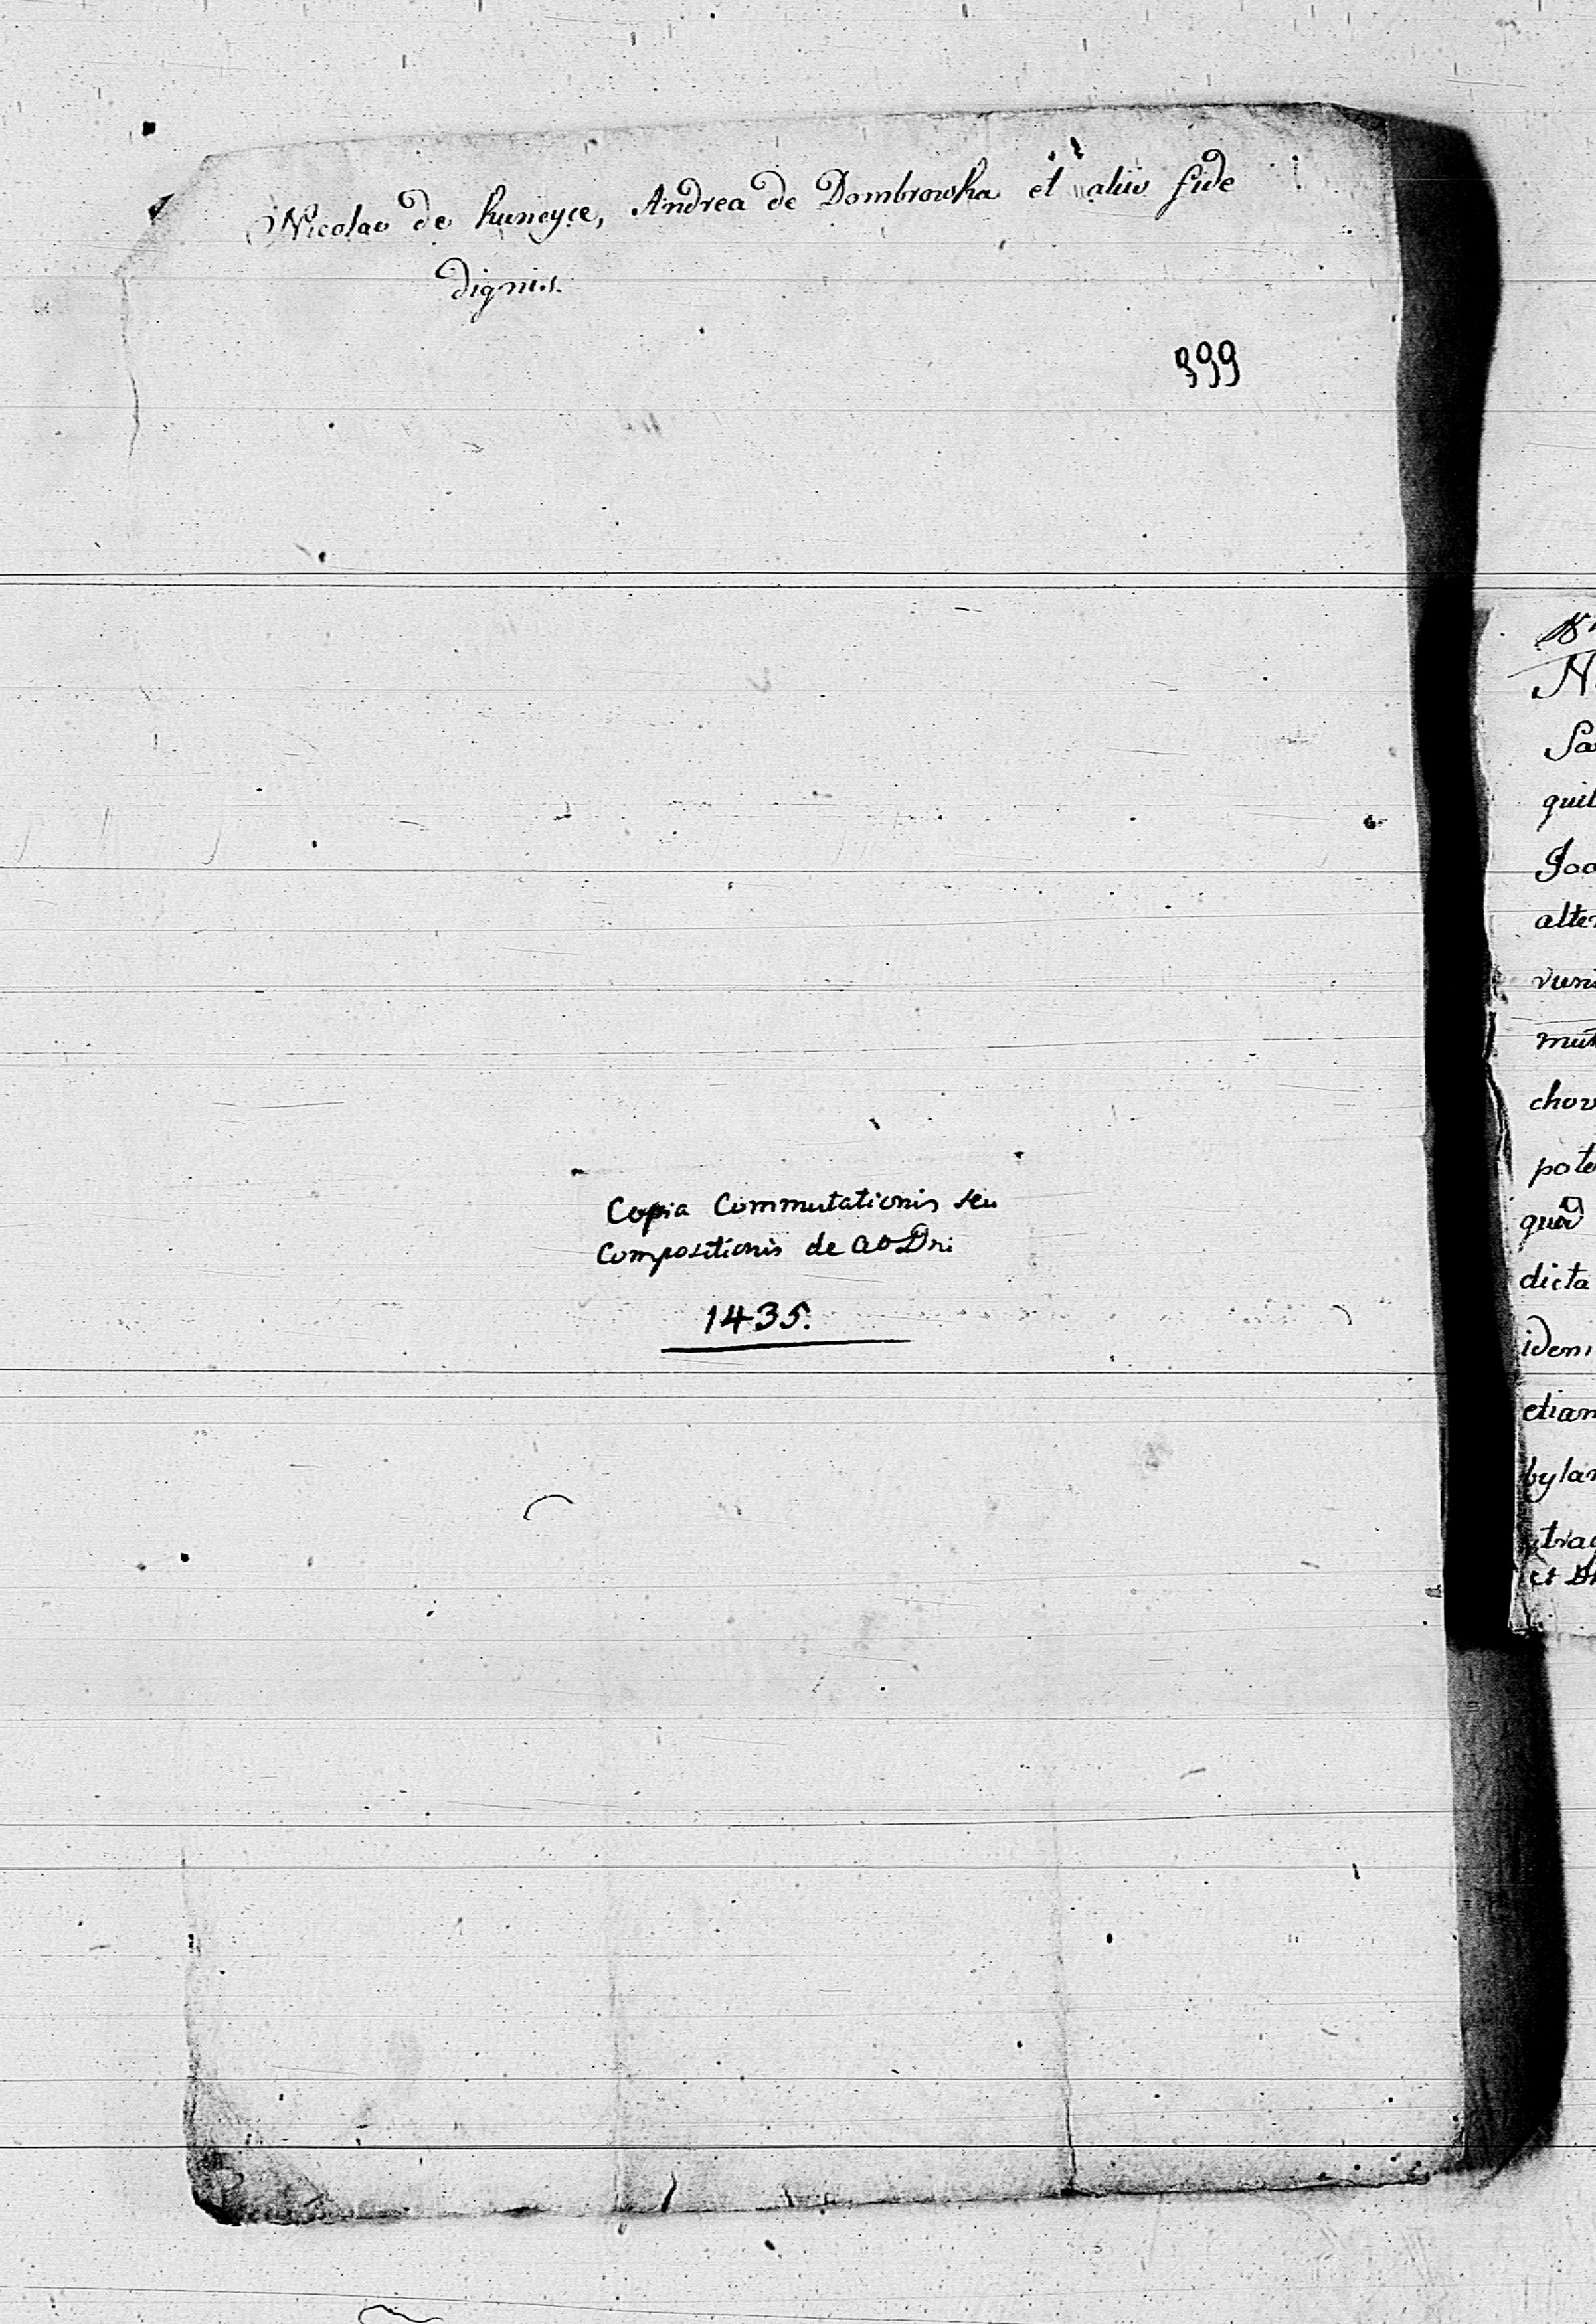 Nicolao de kuneyce, Andrea de Dombrowka et aliis fide
dignis.
399
Copia Commutationis seu
Compositionis de ao Dni
1435.
No
Sa
quil
Joa
alter
vuni
mut
chov
pote
qua
dicta
idem
etiam
bylan
traq
et D